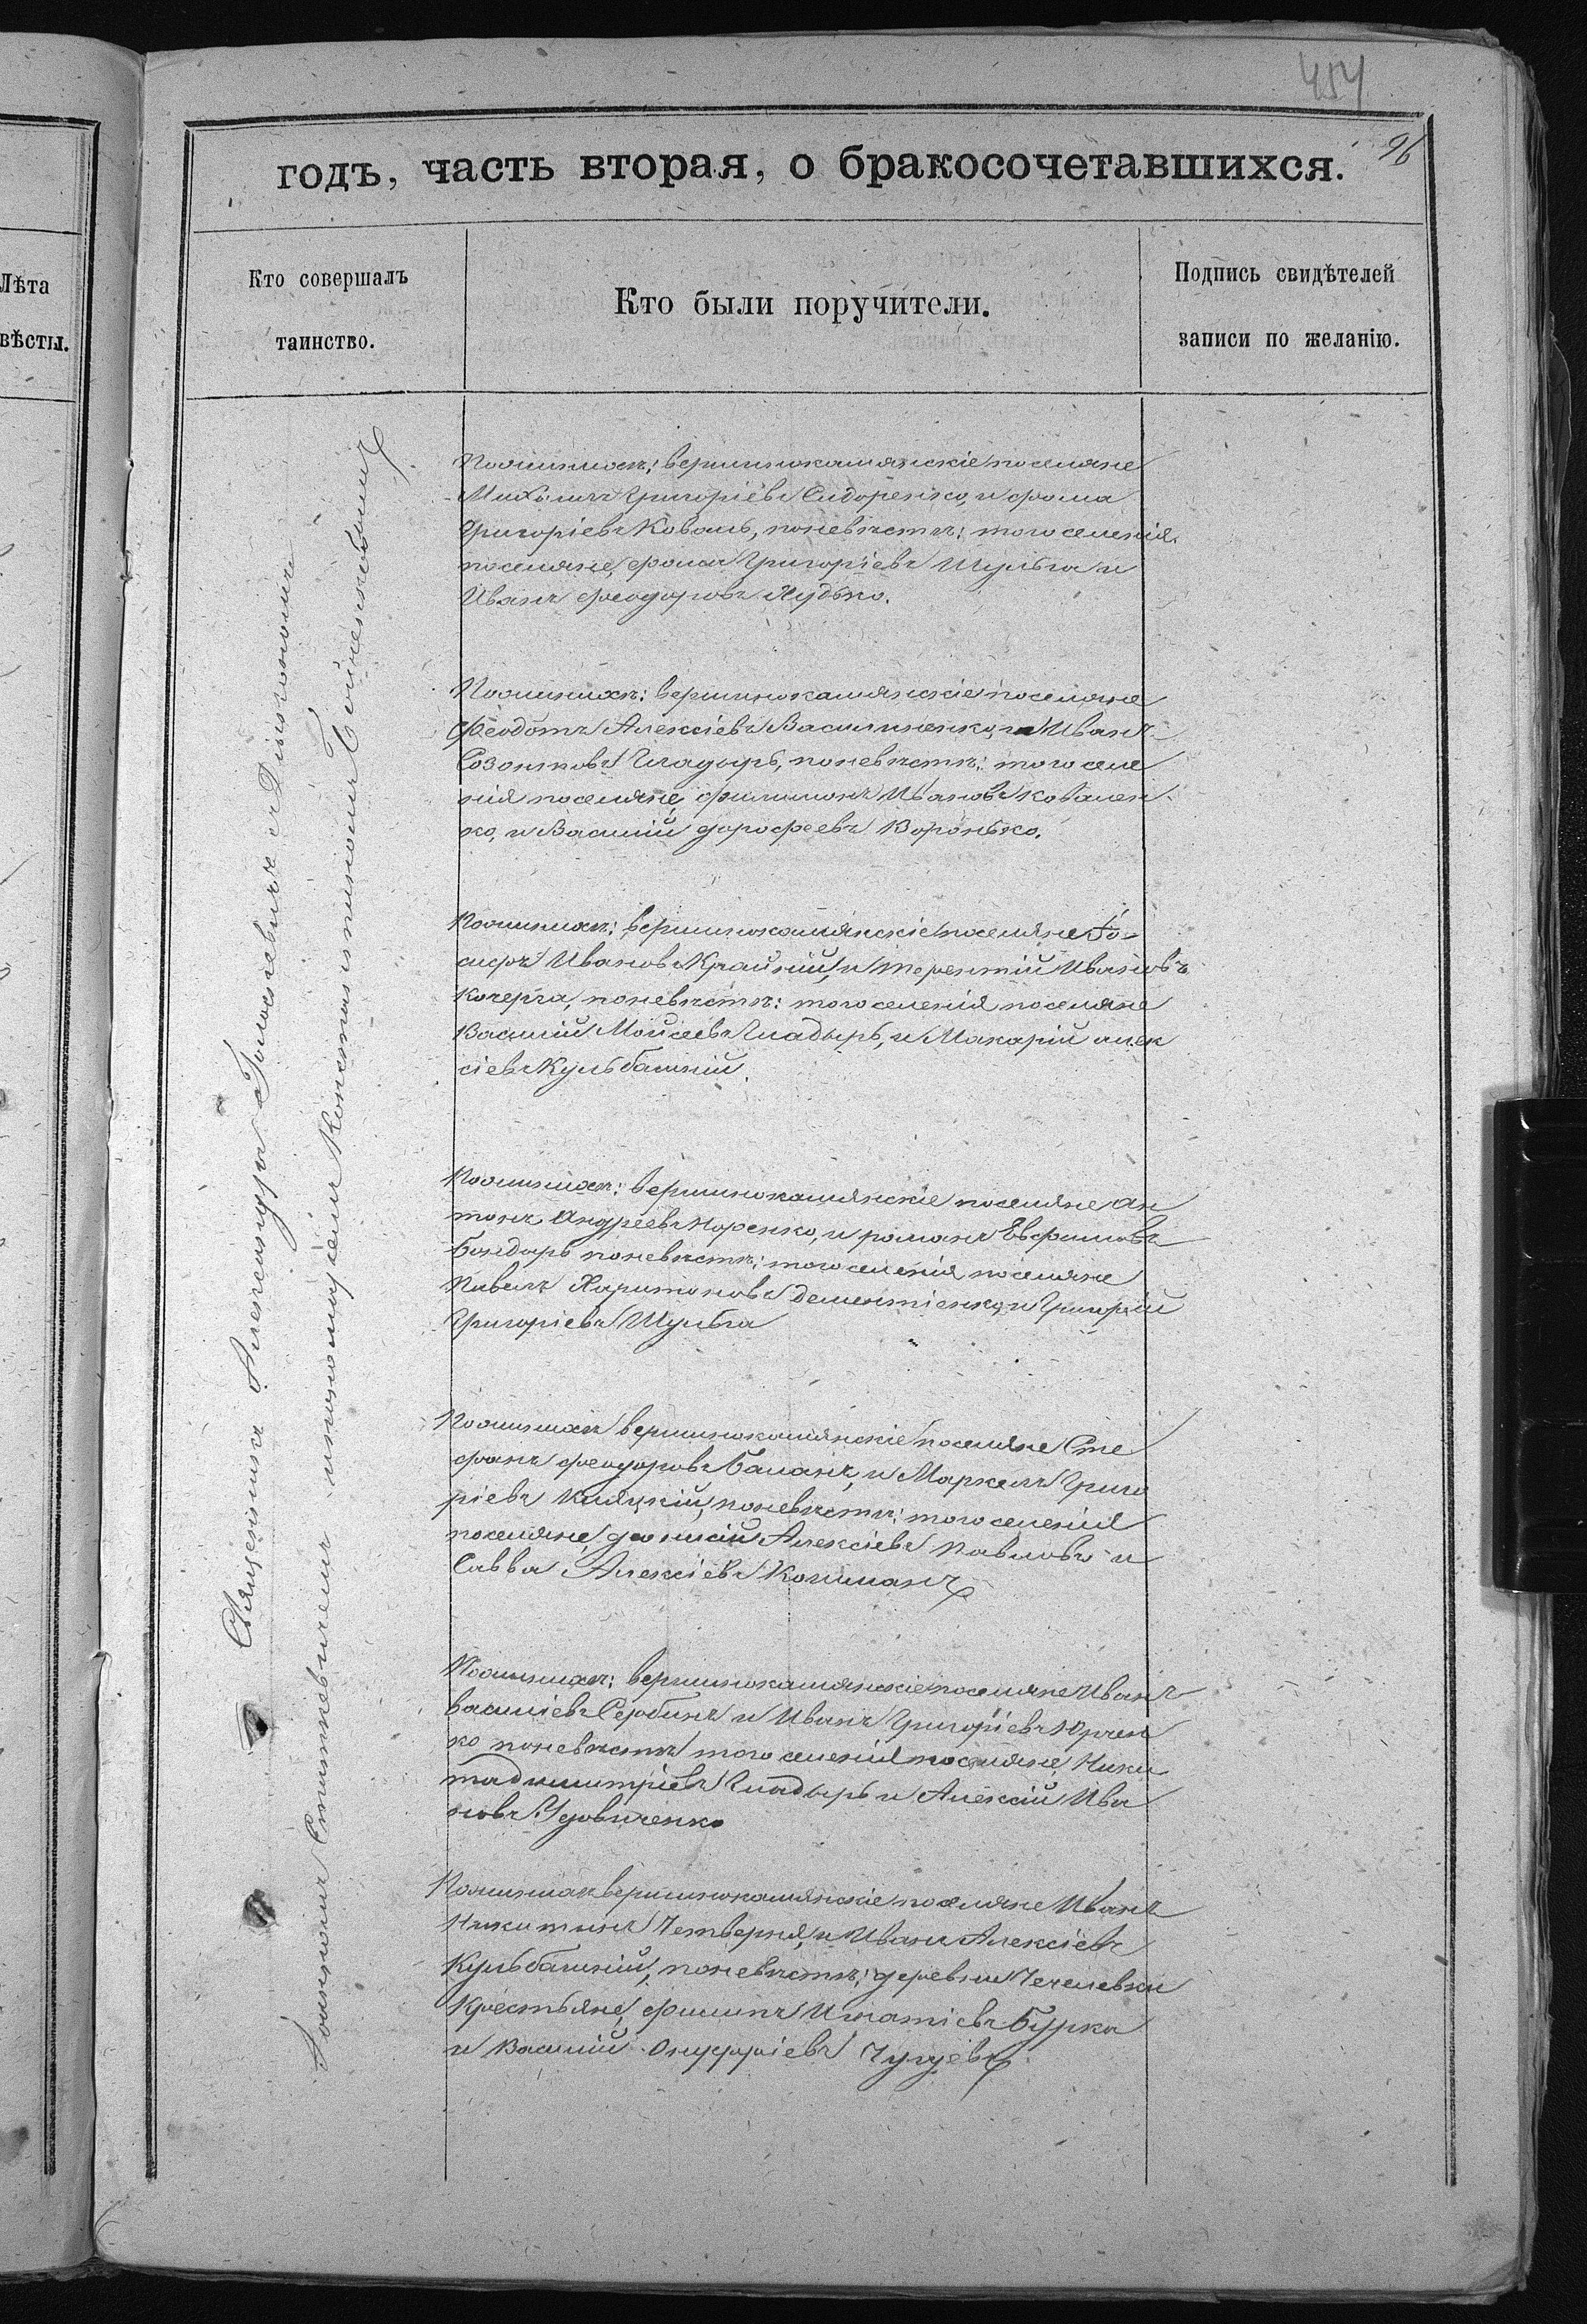 454
96
годъ, часть вторая, о бракосочетавшихся.
Лѣта
вѣсты.
Кто совершалъ
таинство.
Кто были поручители.
Подпись свидѣтелей
записи по желанію.
Священникъ Александръ съ Діакономъ
Іоанномъ и пономаремъ Константиномъ
Поженихѣ: вершинокамянскіе поселяне
Михаилъ Григоріевъ Сидоренко, и Фома
Григоріевъ Коваль, поневѣстѣ: того селенія
поселяне, Фома Григоріевъ Шульга и
Иванъ Феодоровъ Худько.
Поженихѣ: вершинокамянскіе поселяне
Феодотъ Алексіевъ Василиненко, и Иванъ
Созонтовъ Гладырь, поневѣстѣ: того селе
нія поселяне, Филимонъ Ивановъ Ковален
ко, и Василій Дорофеевъ Воронько.
Поженихѣ: вершинокамянскіе поселяне Іо-
сифъ Ивановъ Крайній, и Терентій Ивановъ
Кочерга, поневѣстѣ: того селенія поселяне
Василій Мойсеевъ Гладырь, и Макарій Алек
сіевъ Кульбашній.
Поженихѣ: вершинокамянскіе поселяне Ан
тонъ Андреевъ Норенко, и Романъ Евфимовъ
Бондарь поневѣстѣ: того селенія поселяне
Павелъ Харитоновъ Дементіенко, и Григорій
Григоріевъ Шульга
Поженихѣ вершинокамянскіе поселяне Сте
фанъ Феодоровъ Баланъ, и Маркелъ Григо
ріевъ поневѣстѣ: того селенія
поселяне, Діонисій Алексіевъ Павловъ и
Савва Алексіевъ Колиманъ
Поженихѣ: вершинокамянскіе поселяне Иванъ
Василіевъ Сербинъ и Иванъ Григоріевъ Юрчен
ко поневѣстѣ того селенія поселяне, Ники
та Димитріевъ Гладырь и Алексій Ива
новъ Удовиченко
Поженихѣ вершинокамянскіе поселяне Иванъ
Никитинъ Четверня, и Иванъ Алексіевъ
Кульбашній, поневѣстѣ: деревни Чечелевки
Крестьяне, Филипъ Игнатіевъ Бурка
и Василій Онуфріевъ Чугуевъ